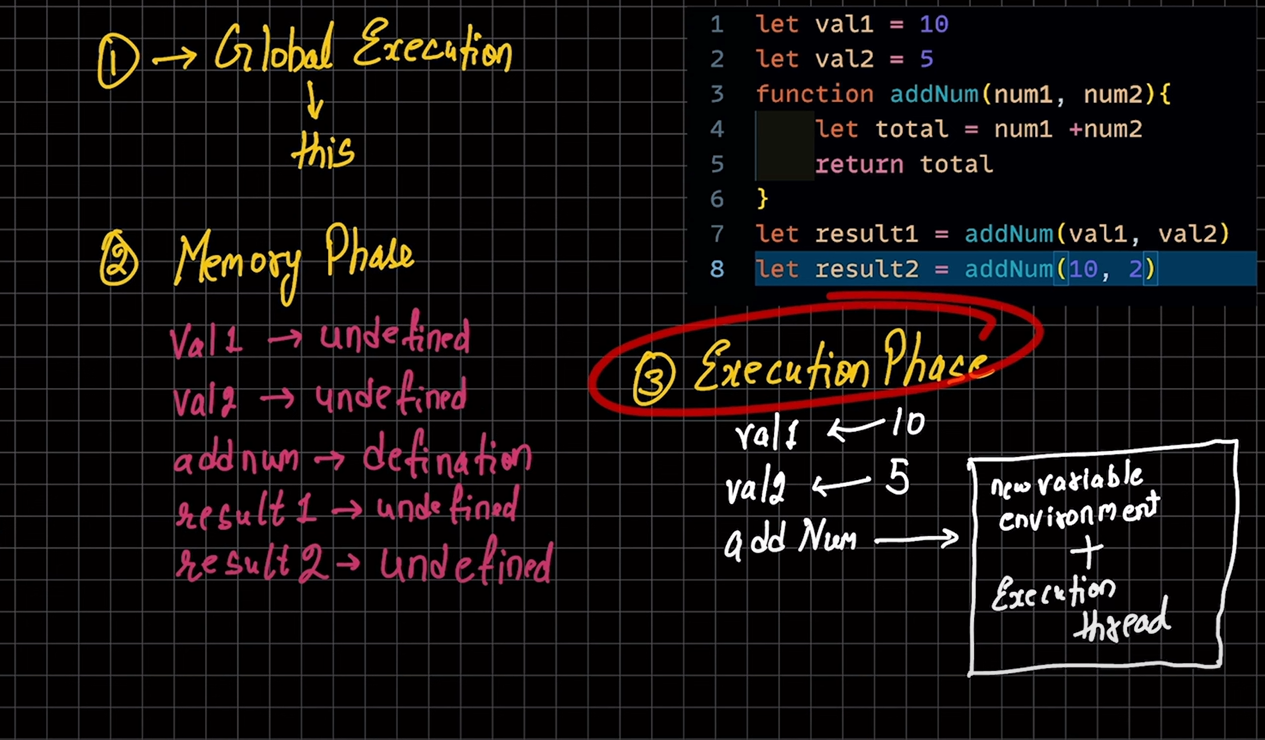 ① → Global Execution
↓
this
② Memory Phase
val1 → undefined
val2 → undefined
addnum → defination
result1 → undefined
result2 → undefined
1 let val1 = 10
2 let val2 = 5
3 function addNum(num1, num2){
4 let total = num1 +num2
5 return total
6 }
7 let result1 = addNum(val1, val2)
8 let result2 = addNum(10, 2)
③ Execution Phase
val1 ← 10
val2 ← 5
add Num →
new variable
environment
+
Execution
thread